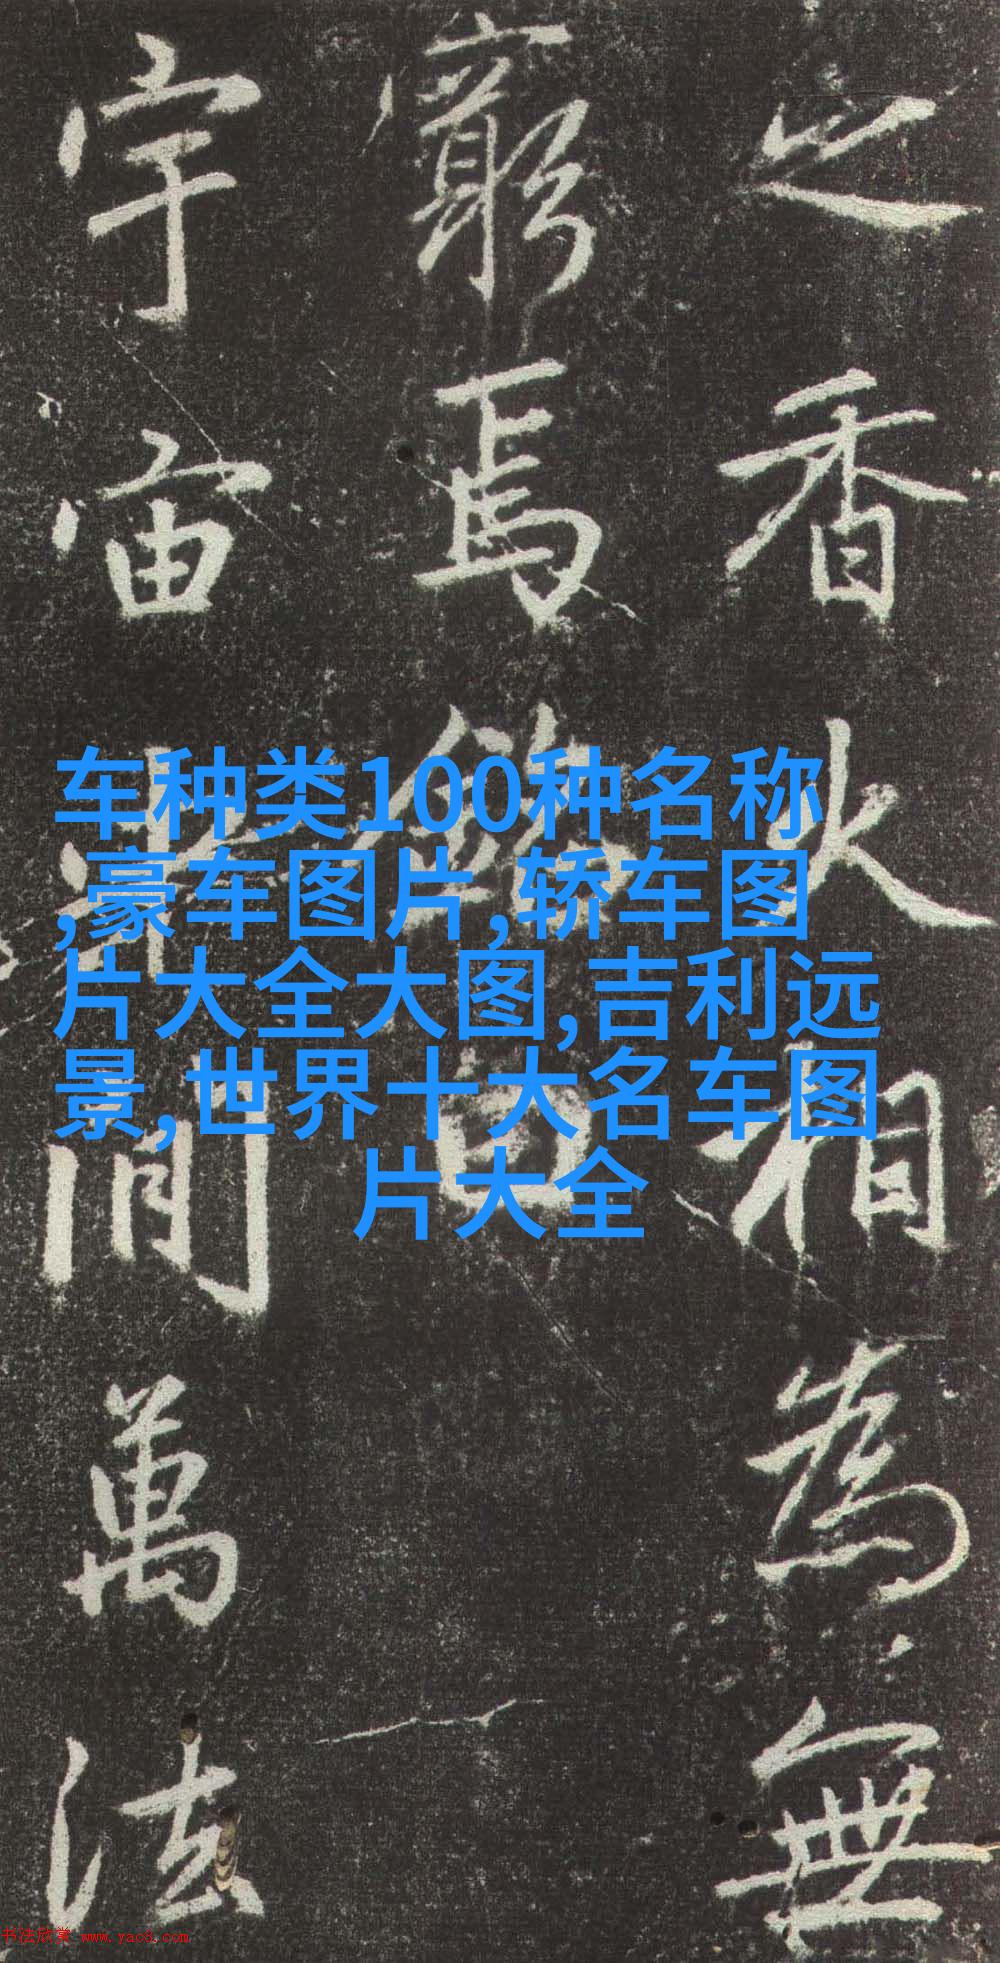 之香火相為無
窮焉銘曰
宇宙間萬法
车种类100种名称
,豪车图片,轿车图
片大全大图,吉利远
景,世界十大名车图
片大全
书法欣赏 www.yac8.com